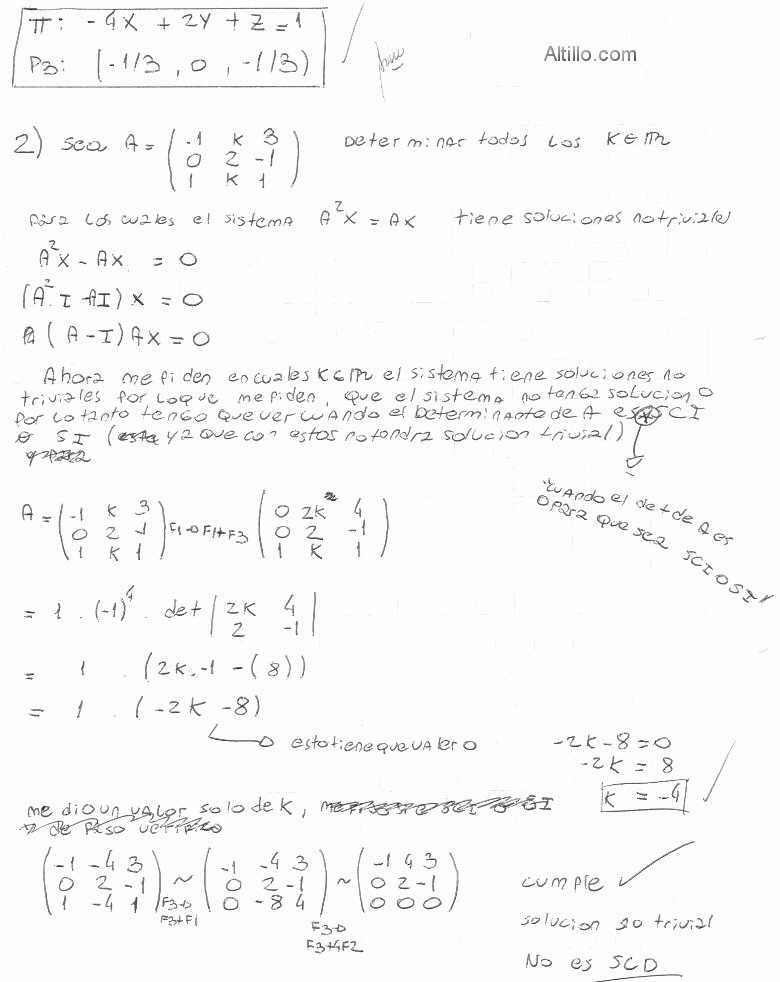 π: -4x + 2y + z = 1
P3: (-1/3, 0, -1/3)
Altillo.com
2) sea A = ( -1 k 3 Determinar todos los k∈ℝ
0 2 -1
1 k 1 )
para los cuales el sistema A²x = Ax tiene soluciones no triviales
A²x - Ax = 0
(A² I - AI) x = 0
(A - I) Ax = 0
Ahora me piden en cuales k∈ℝ el sistema tiene soluciones no
triviales por lo que me piden, que el sistema no tenga solucion 0
por lo tanto tengo que ver cuando el Determinante de A es SCI
o SI (ya que con estos no tendra solucion trivial)
cuando el det de A es
0 para que sea SCI O SI
A = ( -1 k 3 ( 0 2k 4
0 2 -1 F1→F1+F3 0 2 -1
1 k 1 ) 1 k 1 )
= 1 . (-1)⁴ . det | 2k 4
2 -1 |
= 1 . (2k.-1 - (8))
= 1 . (-2k - 8)
esto tiene que valer 0
-2k-8=0
-2k = 8
k = -4
me dio un valor solo de k,
( -1 -4 3 ( -1 -4 3 ( -1 4 3
0 2 -1 ~ 0 2 -1 ~ 0 2 -1
1 -4 1 ) 0 -8 4 ) 0 0 0 )
F3→
F3+F1
F3→
F3+4F2
cumple ✓
solucion no trivial
No es SCD